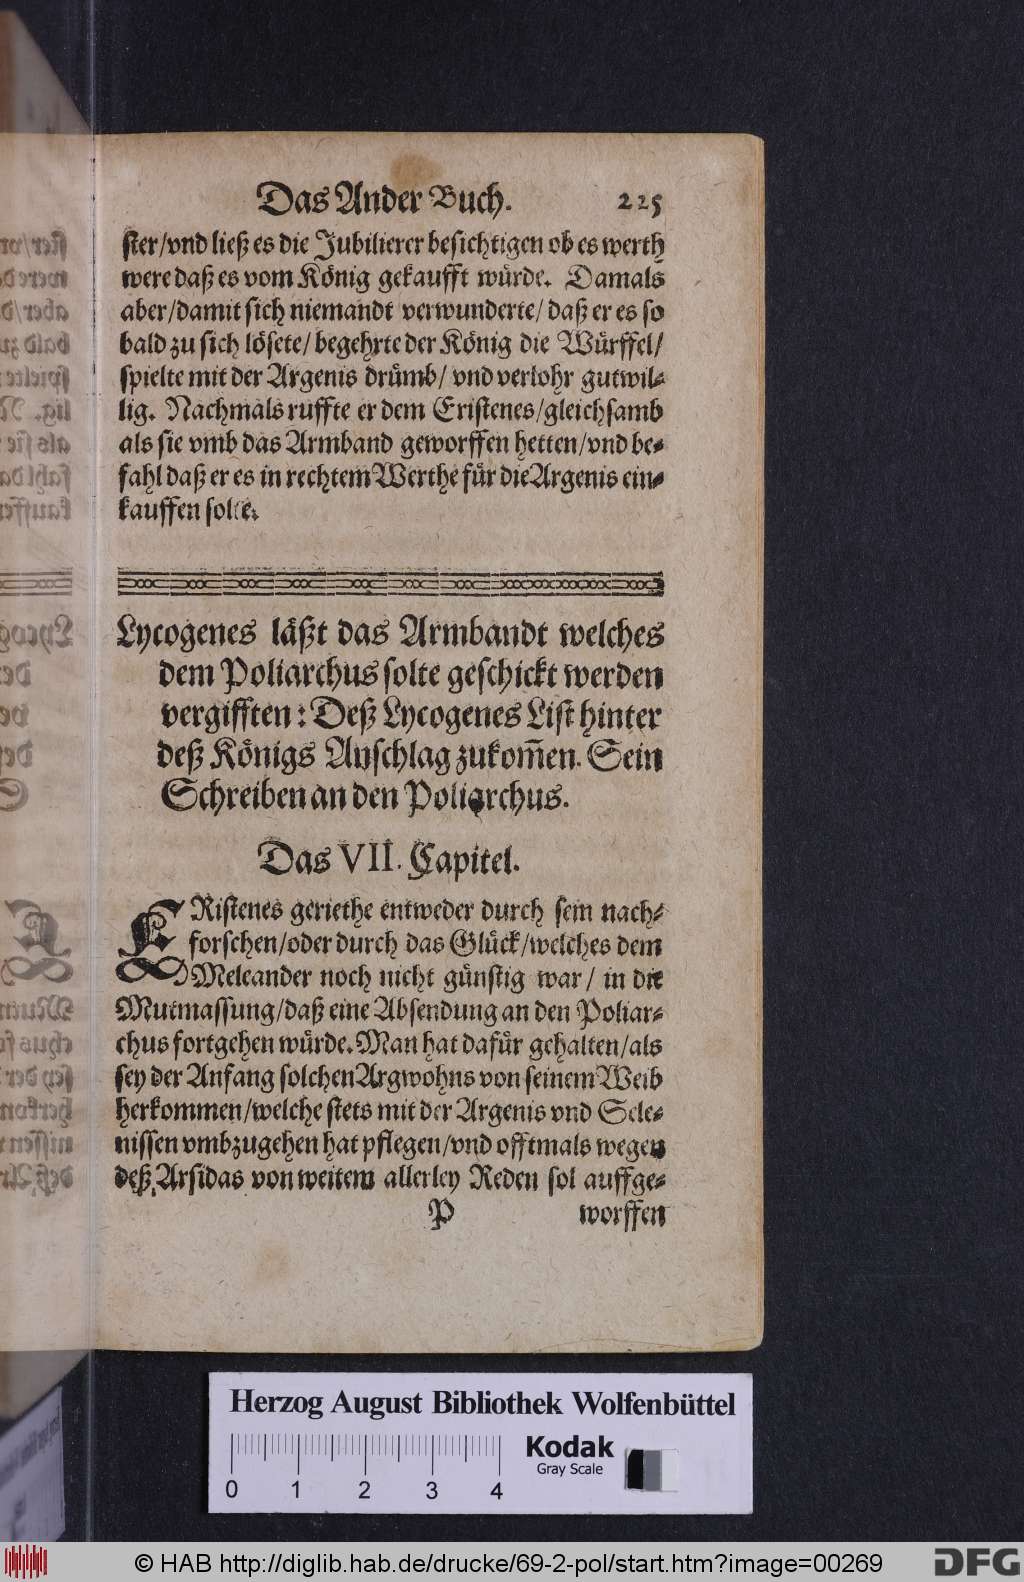 Das Ander Buch. 225
ster/vnd ließ es die Jubilierer besichtigen ob es werth
were daß es vom König gekaufft würde. Damals
aber/damit sich niemandt verwunderte/ daß er es so
bald zu sich lösete/ begehrte der König die Würffel/
spielte mit der Argenis drümb/ vnd verlohr gutwil⸗
lig. Nachmals ruffte er dem Eristenes/gleichsamb
als sie vmb das Armband geworffen hetten/vnd be⸗
fahl daß er es in rechtem Werthe für die Argenis ein⸗
kauffen solte.
Lycogenes läßt das Armbandt welches
dem Poliarchus solte geschickt werden
vergifften: Deß Lycogenes List hinter
deß Königs Anschlag zukom̃en. Sein
Schreiben an den Poliarchus.
Das VII. Capitel.
ERistenes geriethe entweder durch sein nach⸗
forschen/oder durch das Glück/welches dem
Meleander noch nicht günstig war/ in die
Mutmassung/daß eine Absendung an den Poliar⸗
chus fortgehen würde. Man hat dafür gehalten/als
sey der Anfang solchen Argwohns von seinem Weib
herkommen/welche stets mit der Argenis vnd Sele⸗
nissen vmbzugehen hat pflegen/vnd offtmals wegen
deß Arsidas von weitem allerley Reden sol auffge⸗
P worffen
Herzog August Bibliothek Wolfenbüttel
0 1 2 3 4
Kodak
Gray Scale
© HAB http://diglib.hab.de/drucke/69-2-pol/start.htm?image=00269
DFG